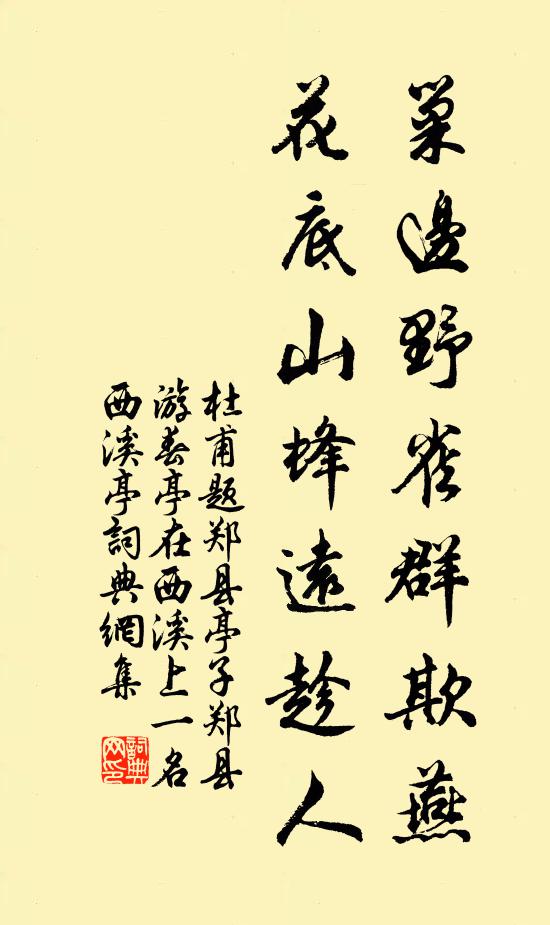 巢邊野雀群欺燕
花底山蜂遠趁人
杜甫题郑县亭子郑县
游春亭在西溪上一名
西溪亭詞典網集
詞典網印